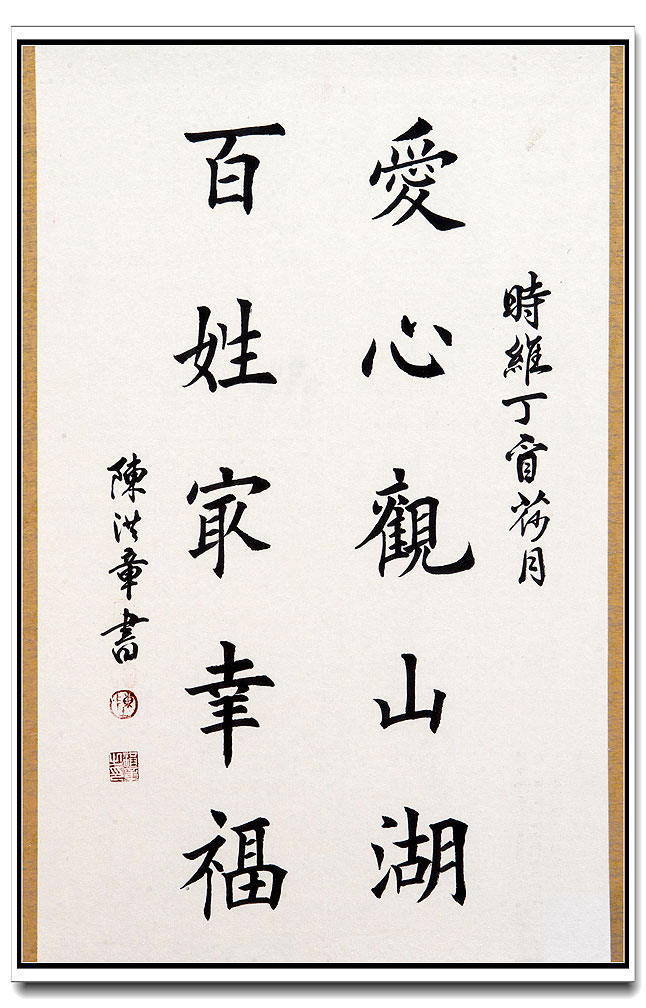 時維丁月
愛心觀山湖
百姓㝡幸福
陳洪章書